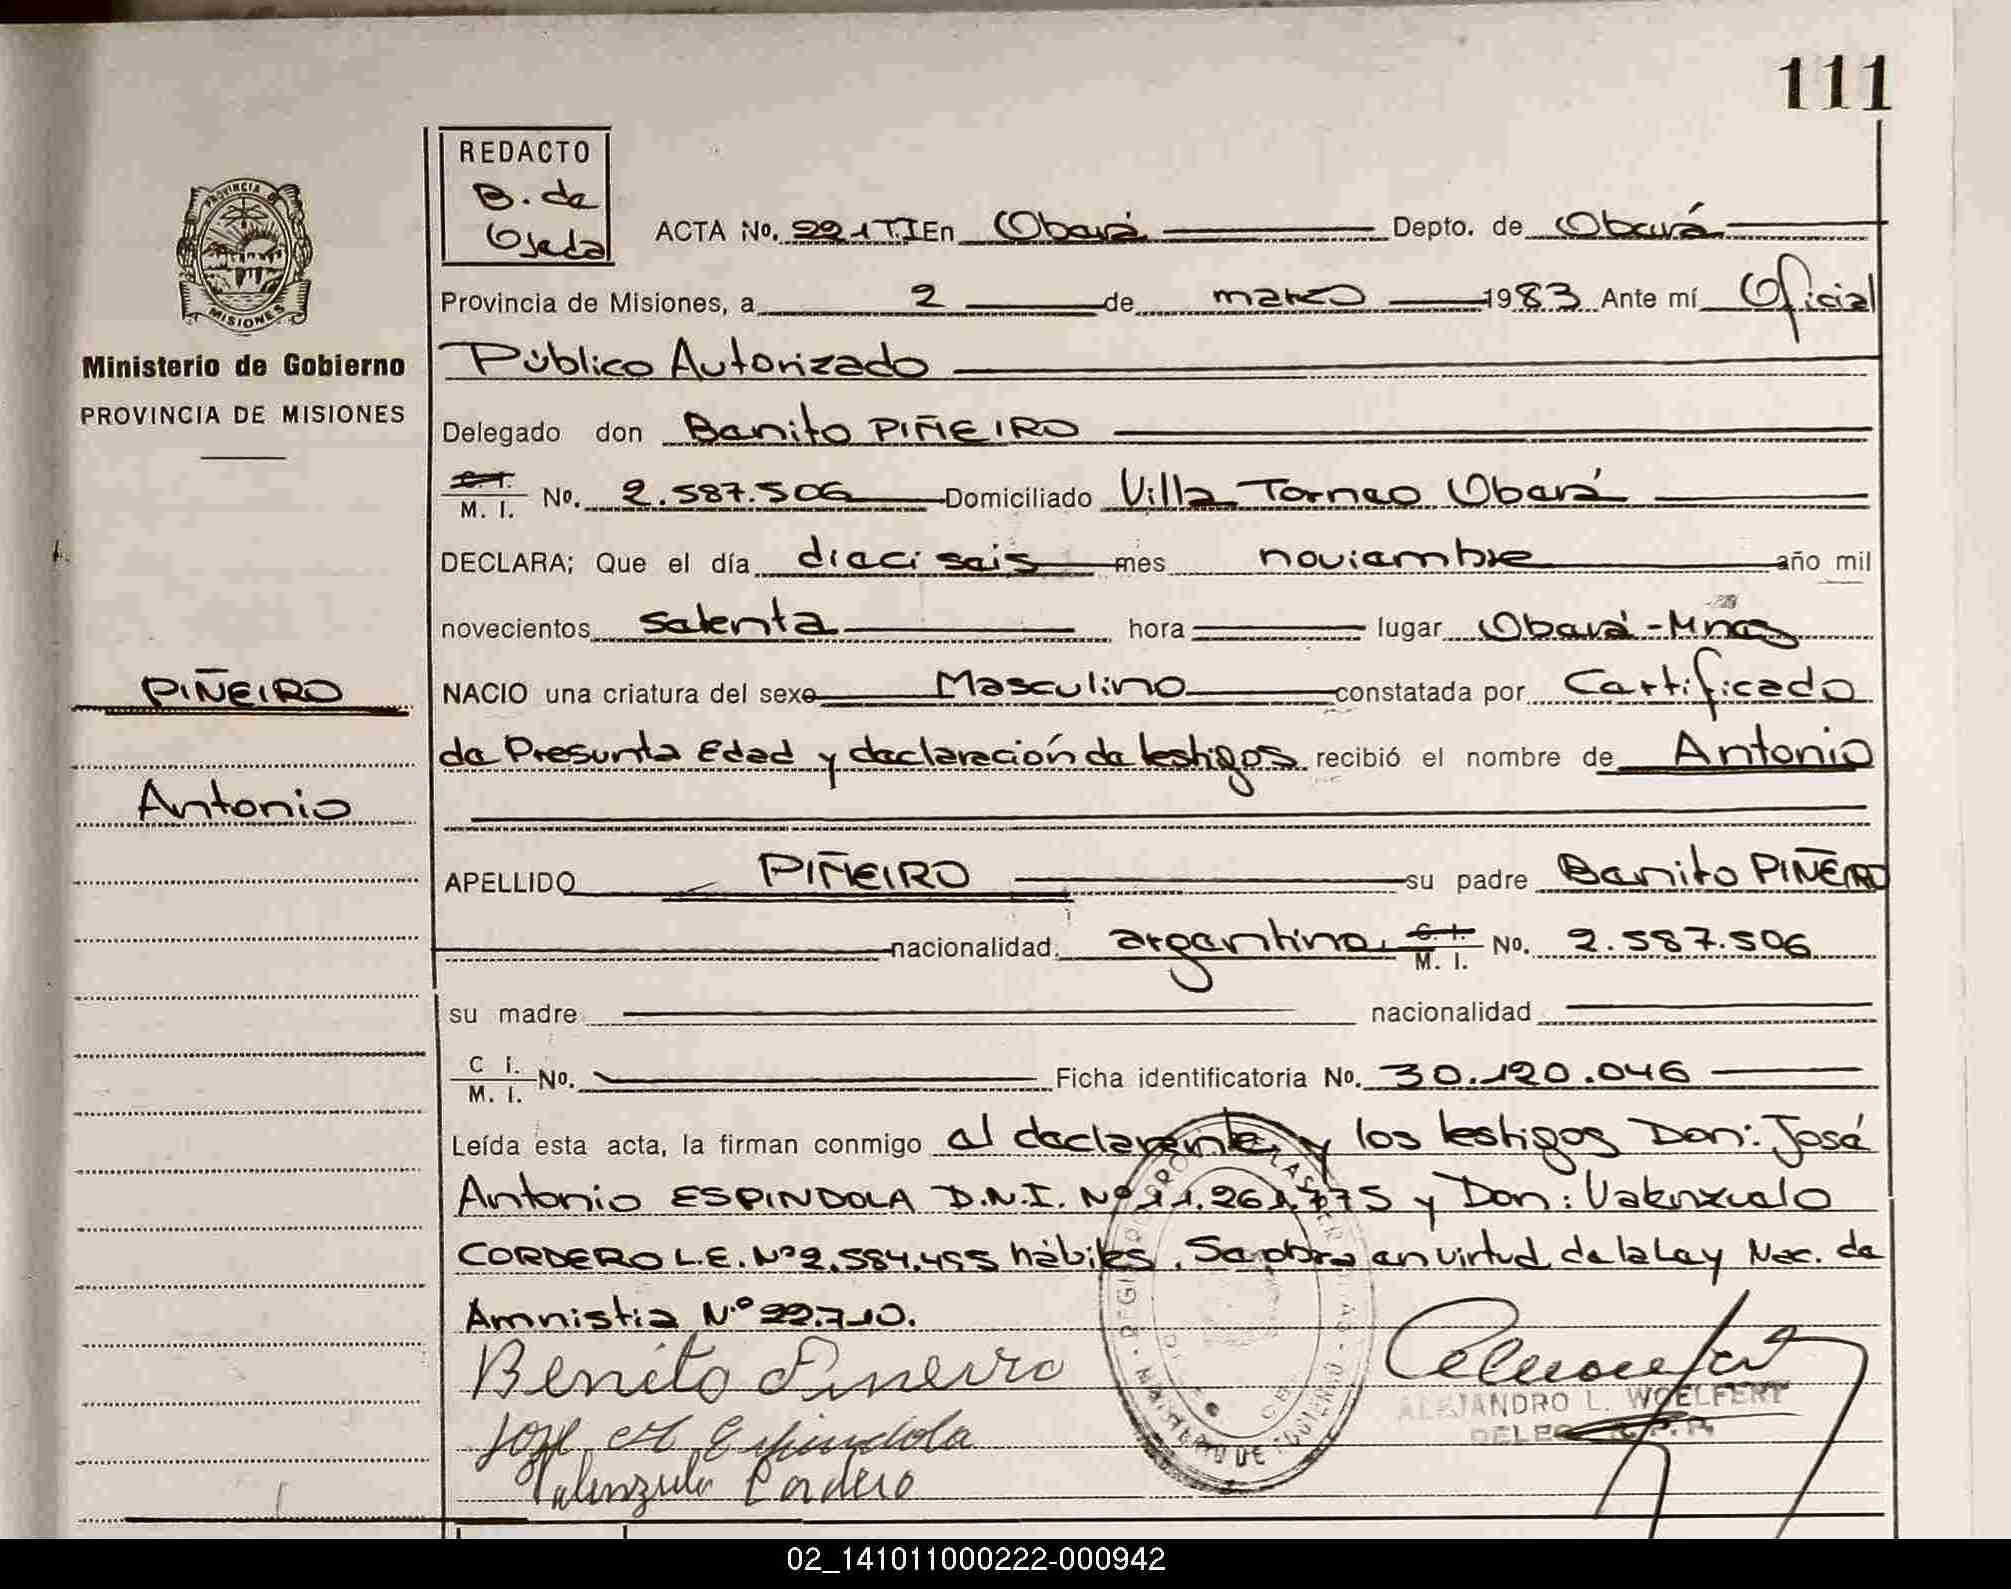 111
REDACTO
B. de
Ojeda
PROVINCIA DE
MISIONES
Ministerio de Gobierno
PROVINCIA DE MISIONES
ACTA No. 221 T.I En Oberá Depto. de Oberá
Provincia de Misiones, a 2 de marzo 1983 Ante mí Oficial
Público Autorizado
Delegado don Benito PIÑEIRO
C. I. / M. I. No. 2.587.506 Domiciliado Villa Torneo Oberá
DECLARA; Que el día dieciseis mes noviembre año mil
novecientos setenta hora lugar Oberá-Mnes
PIÑEIRO
NACIO una criatura del sexo Masculino constatada por Certificado
de Presunta Edad y declaración de testigos recibió el nombre de Antonio
Antonio
APELLIDO PIÑEIRO su padre Benito PIÑEIRO
nacionalidad argentina C. I. / M. I. No. 2.587.506
su madre nacionalidad
C I. / M. I. No. Ficha identificatoria No. 30.120.046
Leída esta acta, la firman conmigo el declarante y los testigos Don: José
Antonio ESPINDOLA D.N.I. Nº 11.261.775 y Don: Valenzuelo
CORDERO L.E. Nº 2.584.455 hábiles. Se obra en virtud de la Ley Nac. de
Amnistia Nº 22.710.
Benito Pineiro
Jose A Espindola
Valenzuelo Cordero
ALEJANDRO L. WOELFERT
MINISTERIO DE GOBIERNO
02_141011000222-000942